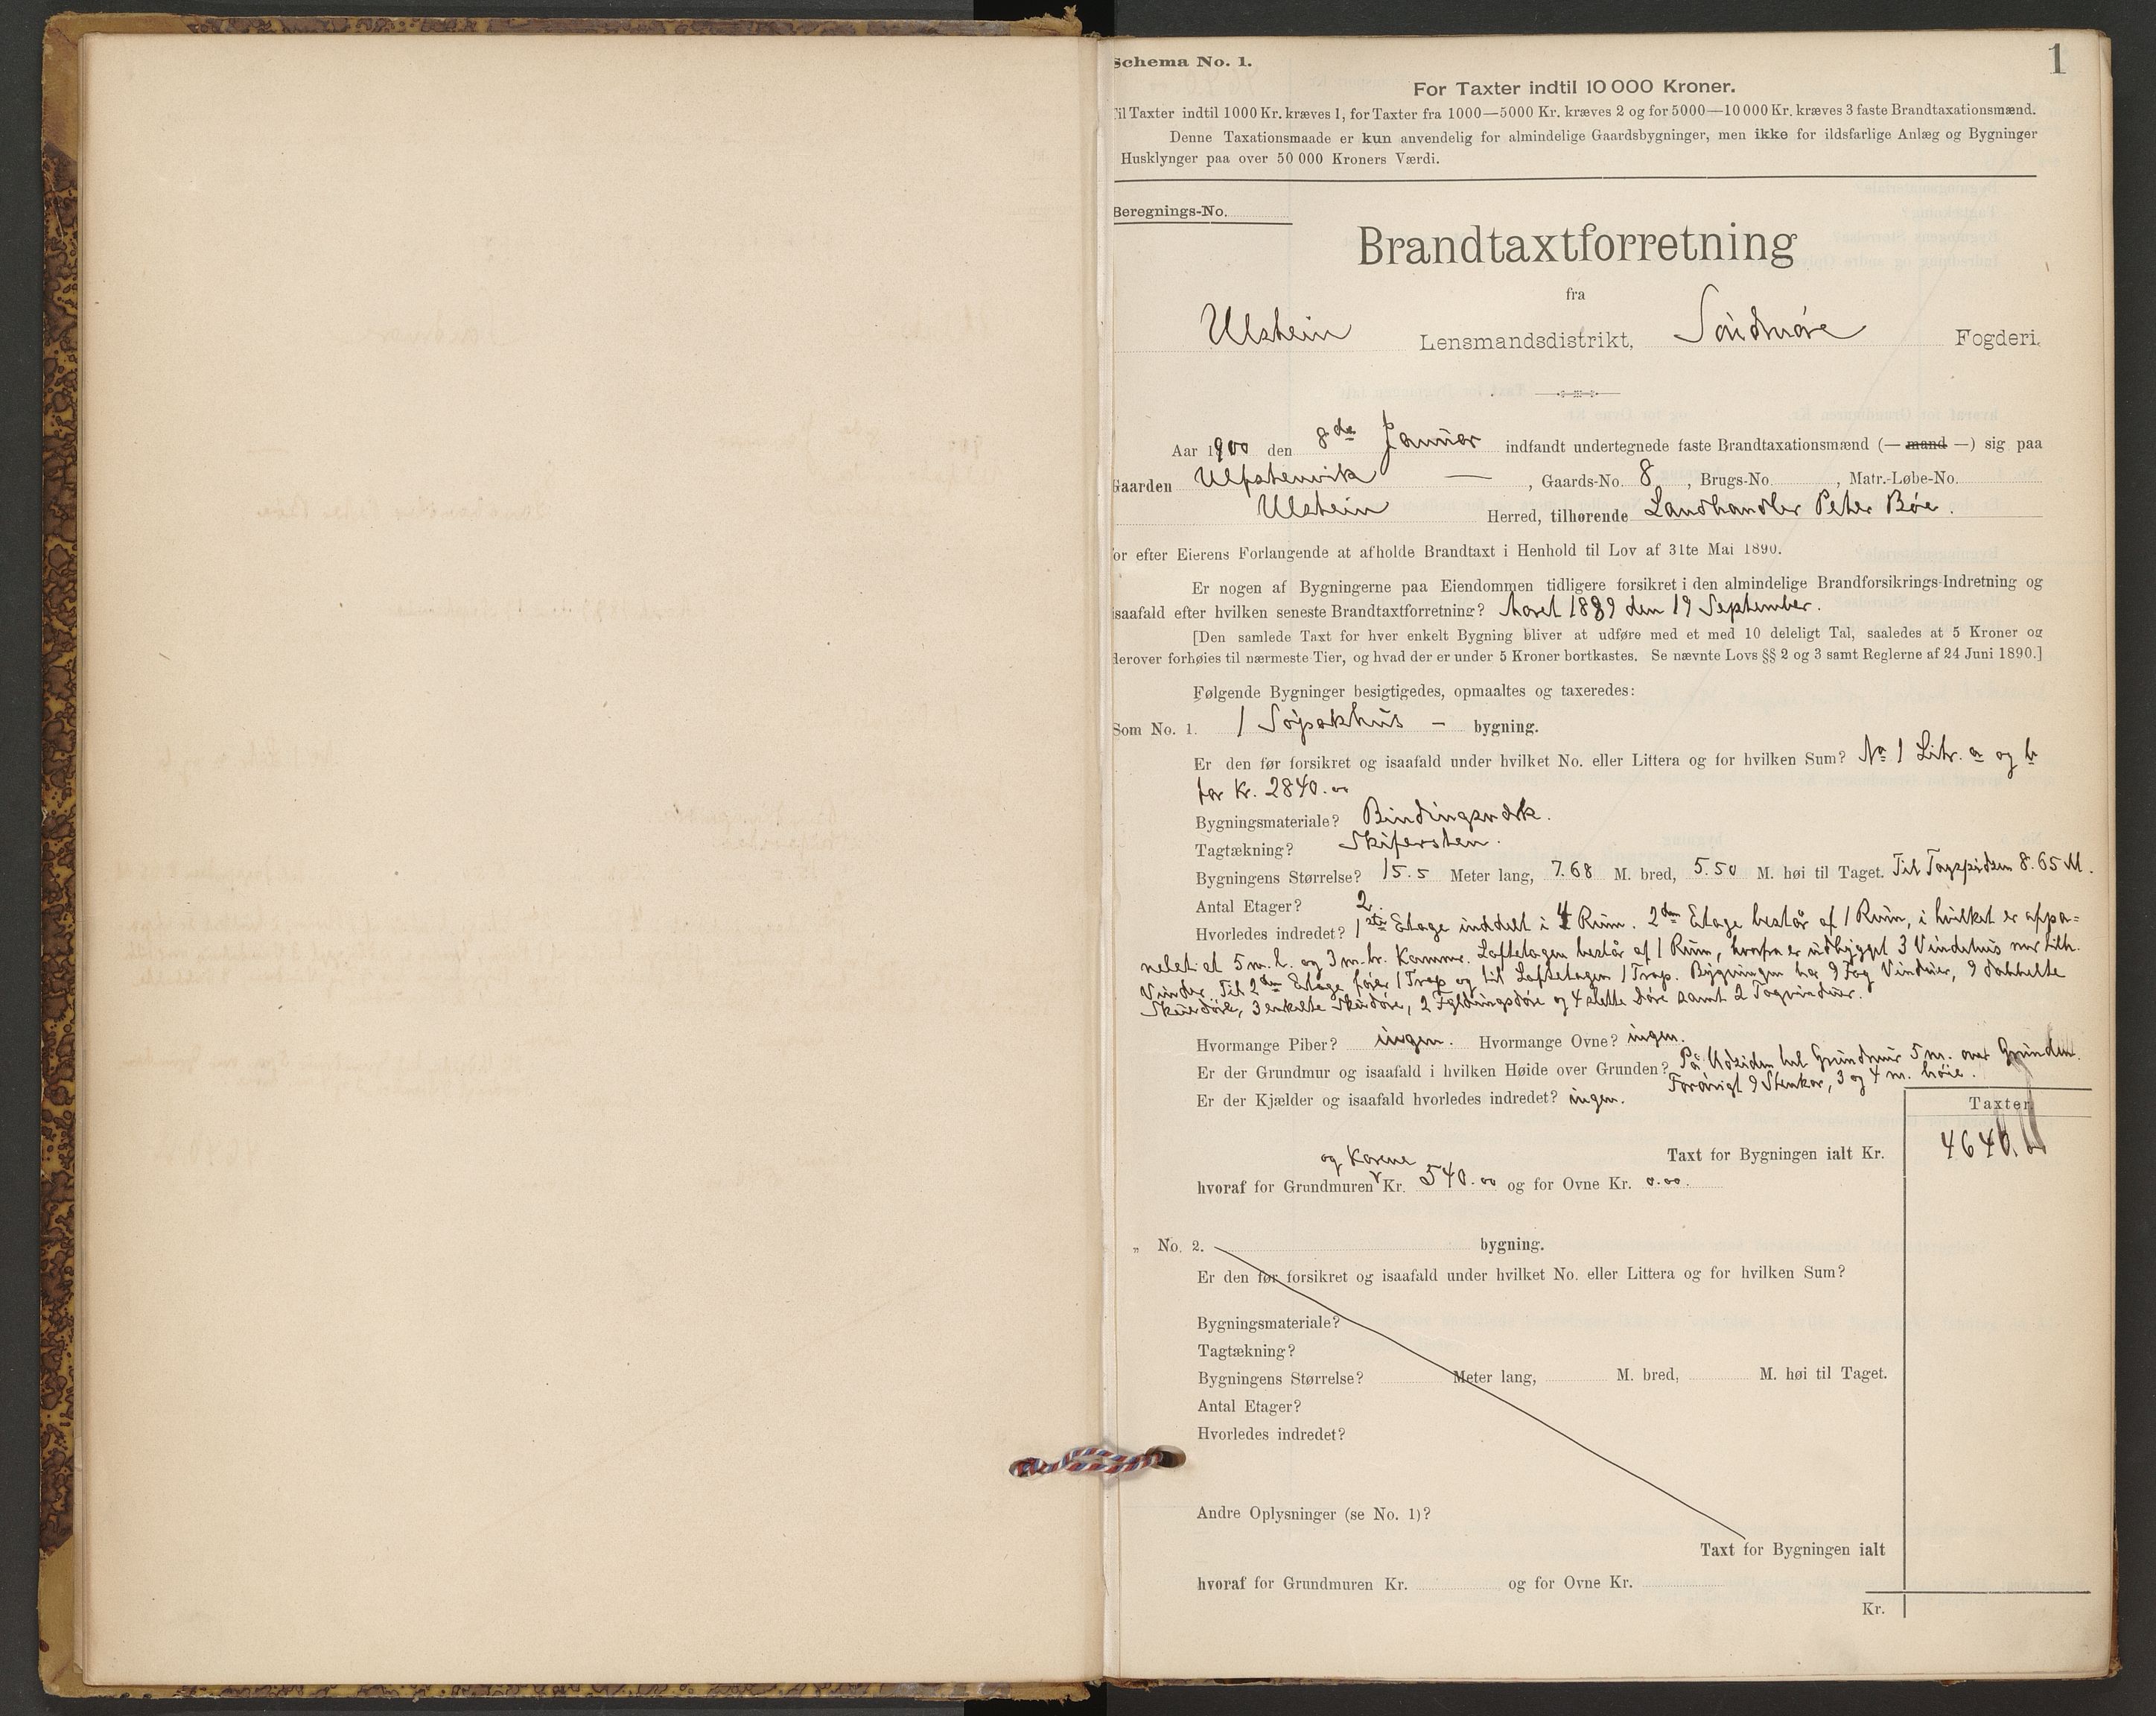 1
Schema No. 1.
For Taxter indtil 10 000 Kroner.
Til Taxter indtil 1000 Kr. kræves 1, for Taxter fra 1000—5000 Kr. kræves 2 og for 5000—10 000 Kr. kræves 3 faste Brandtaxationsmænd.
Denne Taxationsmaade er kun anvendelig for almindelige Gaardsbygninger, men ikke for ildsfarlige Anlæg og Bygninger
Husklynger paa over 50 000 Kroners Værdi.
Beregnings-No.
Brandtaxtforretning
fra
Ulstein Lensmandsdistrikt, Söndmöre Fogderi.
Aar 1900 den 8de Januar indfandt undertegnede faste Brandtaxationsmænd (— mand —) sig paa
Gaarden Ulfstenvik — , Gaards-No. 8 , Brugs-No. , Matr.-Løbe-No.
Ulstein Herred, tilhørende Landhandler Peter Böe.
or efter Eierens Forlangende at afholde Brandtaxt i Henhold til Lov af 31te Mai 1890.
Er nogen af Bygningerne paa Eiendommen tidligere forsikret i den almindelige Brandforsikrings-Indretning og
isaafald efter hvilken seneste Brandtaxtforretning? Aaret 1889 den 19 September.
[Den samlede Taxt for hver enkelt Bygning bliver at udføre med et med 10 deleligt Tal, saaledes at 5 Kroner og
derover forhøies til nærmeste Tier, og hvad der er under 5 Kroner bortkastes. Se nævnte Lovs §§ 2 og 3 samt Reglerne af 24 Juni 1890.]
Følgende Bygninger besigtigedes, opmaaltes og taxeredes:
Som No. 1. 1 Söpakhus — bygning.
Er den før forsikret og isaafald under hvilket No. eller Littera og for hvilken Sum? No 1 Litr. a og b
for Kr. 2840.00
Bygningsmateriale? Bindingsværk.
Tagtækning? Skifersten.
Bygningens Størrelse? 15.5 Meter lang, 7.68 M. bred, 5.50 M. høi til Taget. Til Tagspidsen 8.65 M.
Antal Etager? 2.
Hvorledes indredet? 1ste Etage inddelt i 4 Rum. 2den Etage består af 1 Rum, i hvilket er appa=
nelet et 5 m. l. og 3 m. br. Kammer. Loftetagen består af 1 Rum, hvorfra er udbygget 3 Vindehus med tilh.
Vinder. Til 2den Etage fører 1 Trap og til Loftetagen 1 Trap. Bygningen har 9 Fag Vinduer, 9 dobbelte
Skurdöre, 3 enkelte Skurdöre, 2 Fyldningsdöre og 4 slette Döre samt 2 Tagvinduer.
Hvormange Piber? ingen. Hvormange Ovne? ingen.
Er der Grundmur og isaafald i hvilken Høide over Grunden? På Udsiden hel Grundmur 5 m. over Grunden.
Forövrigt 9 Stenkar, 3 og 4 m. höie.
Er der Kjælder og isaafald hvorledes indredet? ingen.
Taxter.
Taxt for Bygningen ialt Kr. 4640.00
og Karene
hvoraf for Grundmuren Kr. 540.00 og for Ovne Kr. 0.00.
„ No. 2. bygning.
Er den før forsikret og isaafald under hvilket No. eller Littera og for hvilken Sum?
Bygningsmateriale?
Tagtækning?
Bygningens Størrelse? Meter lang, M. bred, M. høi til Taget.
Antal Etager?
Hvorledes indredet?
Andre Oplysninger (se No. 1)?
Taxt for Bygningen ialt
hvoraf for Grundmuren Kr. og for Ovne Kr.
Kr.